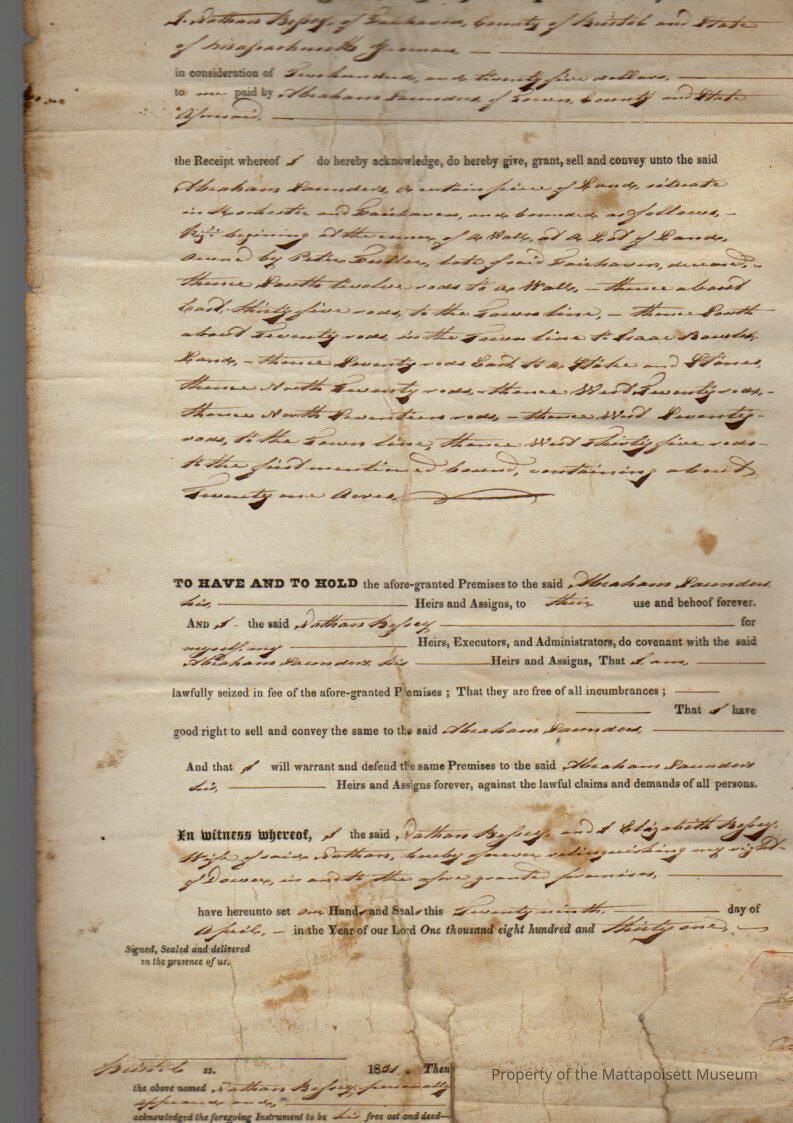 I, Nathan Bessey, of Fairhaven, County of Bristol and State
of Massachusetts, Yeoman,
in consideration of Two hundred, and twenty five dollars,
to me paid by Abraham Saunders of Town, County and State
Aforesaid,
the Receipt whereof I do hereby acknowledge, do hereby give, grant, sell and convey unto the said
Abraham Saunders, a certain piece of Land, situate
in Rochester and Fairhaven, and bounded, as follows, -
begining at the corner of a Wall, at a Lot of Land,
owned by Peter late of said Fairhaven, deceased, -
thence South twelve rods to a Wall, - thence about
East, thirty five rods, to the Town line, - thence South
about Twenty rods, in the Town line to Isaac Bowles,
Land, - thence Seventy rods East, to a Stake and Stones,
thence North Twenty rods, - thence West Twenty rods, -
thence North Seventeen rods, - thence West Seventy -
rods, to the Town line, thence West thirty five rods
to the first mentioned bound, containing about
Twenty one Acres,
TO HAVE AND TO HOLD the afore-granted Premises to the said Abraham Saunders,
his, Heirs and Assigns, to their use and behoof forever.
AND I the said Nathan Bessey for
myself, my Heirs, Executors, and Administrators, do covenant with the said
Abraham Saunders, his Heirs and Assigns, That I am
lawfully seized in fee of the afore-granted Premises ; That they are free of all incumbrances ;
That I have
good right to sell and convey the same to the said Abraham Saunders,
And that I will warrant and defend the same Premises to the said Abraham Saunders
his, Heirs and Assigns forever, against the lawful claims and demands of all persons.
In witness whereof, I the said Nathan Bessey, and I Elizabeth Bessey,
Wife of said Nathan, hereby forever relinquishing my right
of Dower, in and to the afore granted premises,
have hereunto set our Hands and Seals this Twenty ninth day of
April, - in the Year of our Lord One thousand eight hundred and thirty one,
Signed, Sealed and delivered
in the presence of us.
Bristol ss. 1831. Then
the above named Nathan Bessey, personally
appeared and,
acknowledged the foregoing Instrument to be his free act and deed—
Property of the Mattapoisett Museum